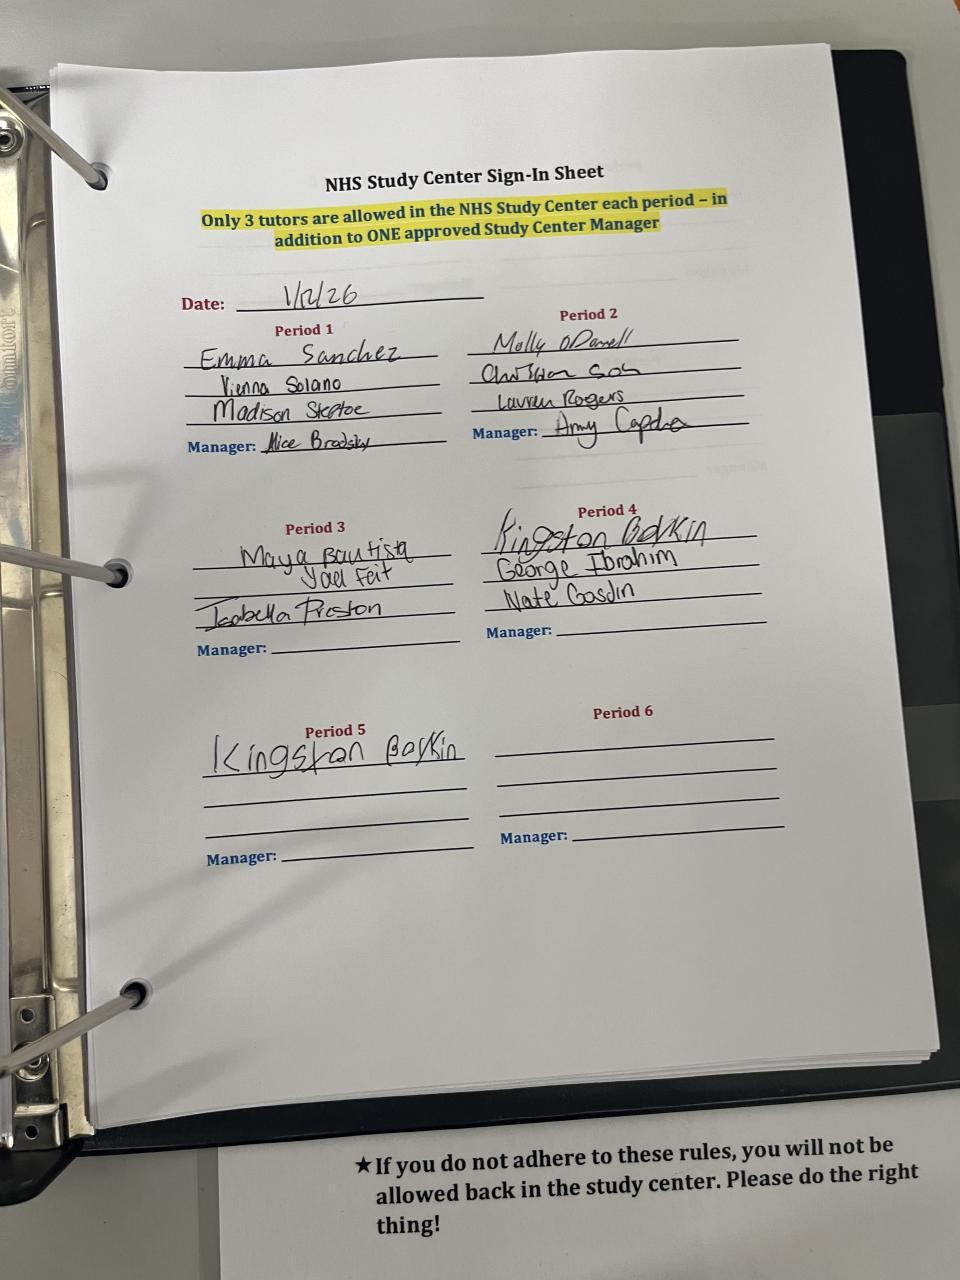 NHS Study Center Sign-In Sheet
Only 3 tutors are allowed in the NHS Study Center each period – in
addition to ONE approved Study Center Manager
Date: 1/12/26
Period 1
Emma Sanchez
Vienna Solano
Madison Steptoe
Manager: Alice Brodsky
Period 2
Molly
Christian
Lauren Rogers
Manager: Amy
Period 3
Maya Bautista
Yael Feit
Isabella Preston
Manager:
Period 4
Kingston Boykin
George Ibrahim
Nate Gosdin
Manager:
Period 5
Kingston Boykin
Manager:
Period 6
Manager:
★ If you do not adhere to these rules, you will not be
allowed back in the study center. Please do the right
thing!